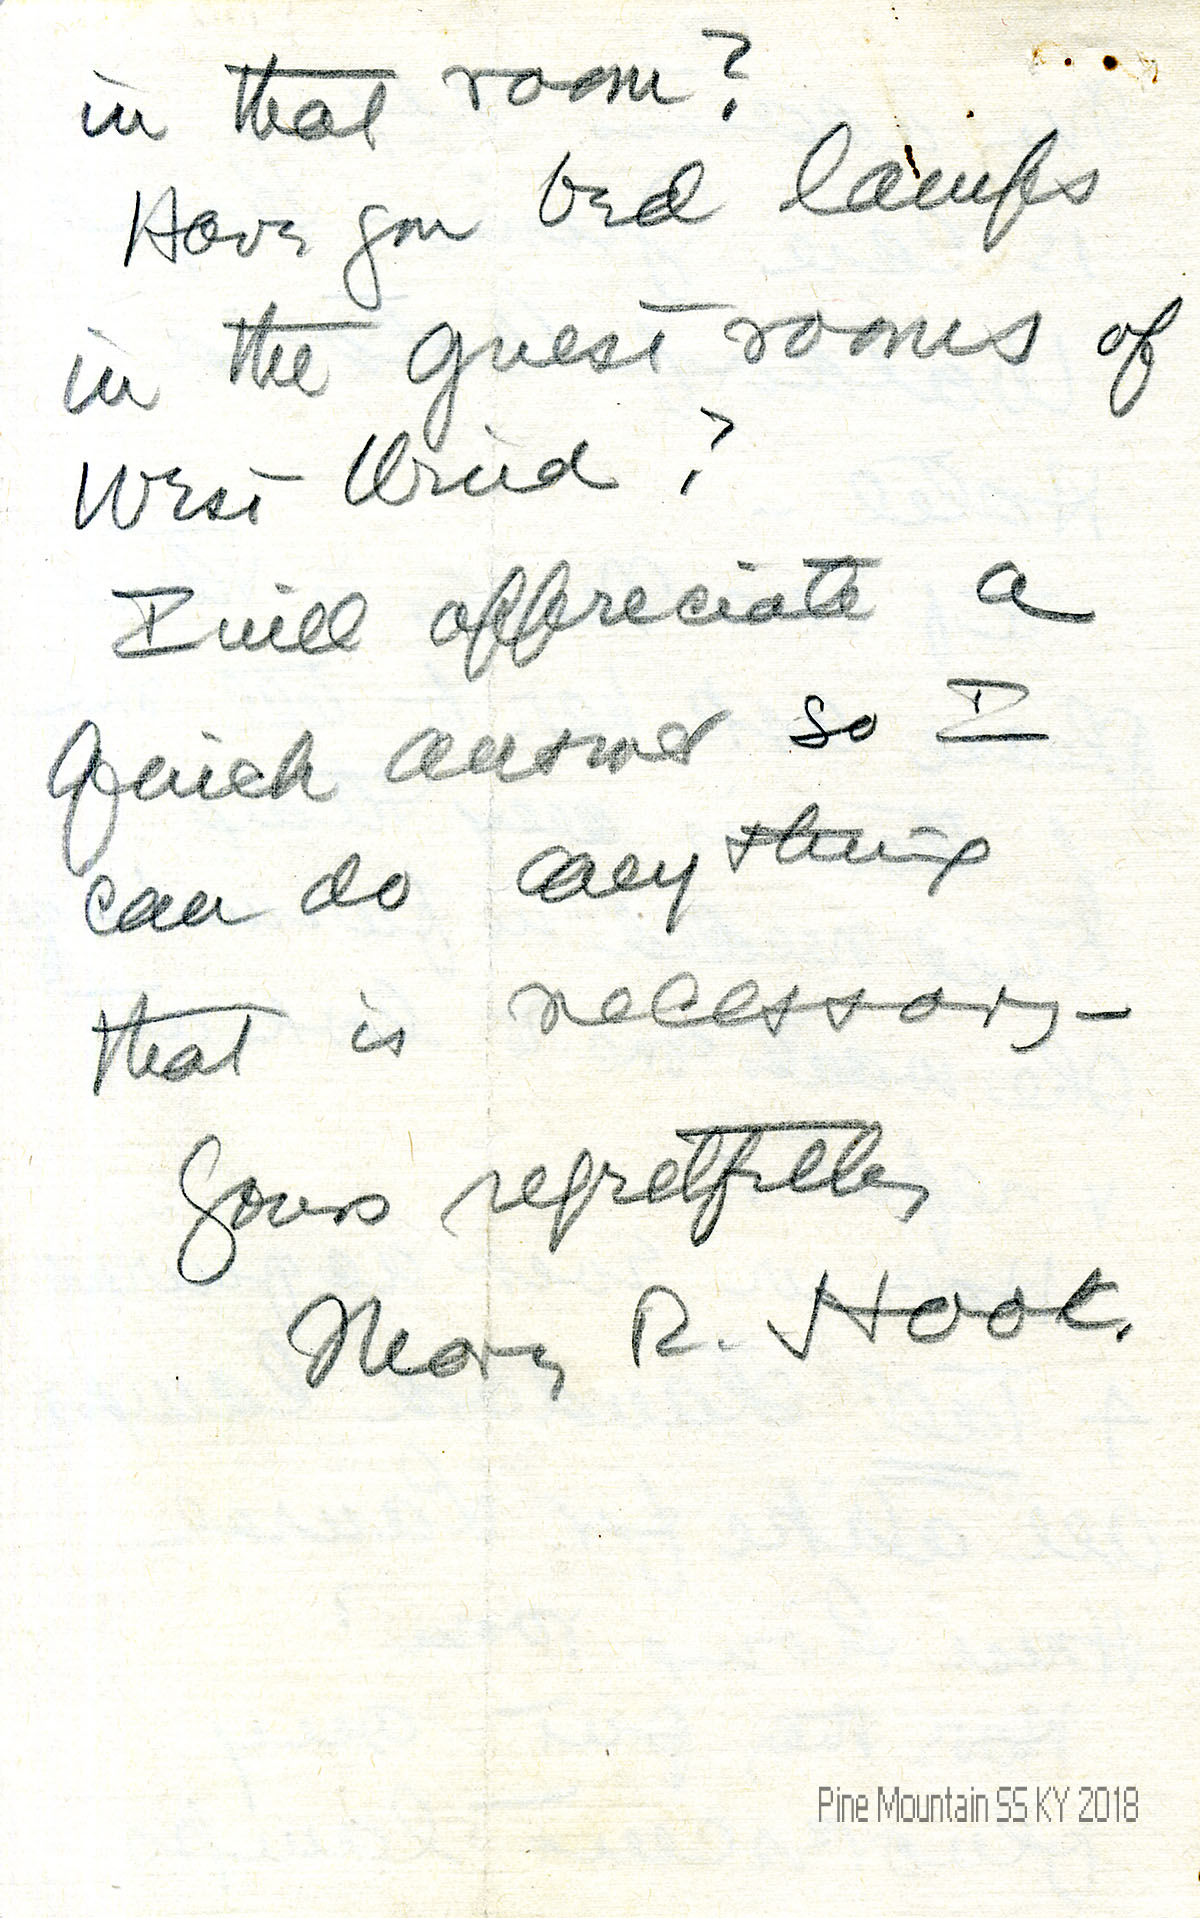 in that room?
Have you bed lamps
in the guest rooms of
West Wind?
I will appreciate a
quick answer so I
can do anything
that is necessary—
Yours regretfully
Mary R. Hook.
Pine Mountain SS KY 2018